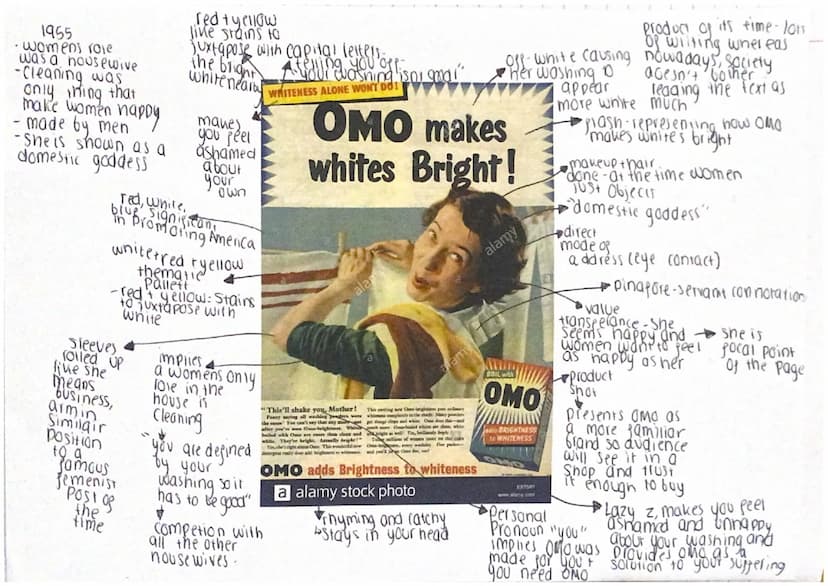 1955
- womens role
was a housewife
- cleaning was
only thing that
make women happy
- made by men
- she is shown as a
domestic goddess
red + yellow
like stains to
juxtapose with
the bright
white nearby
capital letters-
telling you off-
"your washing isnt good"
makes
you feel
ashamed
about
your
own
off-white causing
her washing to
appear
more white
product of its time - lots
of writing whereas
nowadays, society
doesn't bother
reading the text as
much
flash- representing how OMO
makes white's bright
makeup + hair
done - at the time women
just objects
"domestic goddess"
direct
mode of
address (eye contact)
pinafore - servant connotation
value
transferance - she
seems happy and
women want to feel
as happy as her
she is
focal point
of the page
product
shot
presents OMO as
a more familiar
brand so audience
will see it in a
shop and trust
it enough to buy
Lazy z, makes you feel
ashamed and unhappy
about your washing and
provides OMO as a
solution to your suffering
personal
Pronoun "you"
implies OMO was
made for you +
you need OMO
rhyming and catchy
stays in your head
red, white,
blue significan,
in promoting America
white + red + yellow
thematic
pallett
- red + yellow: stains
to juxtapose with
white
sleeves
rolled up
like she
means
business,
arm in
similair
position
to a
famous
femenist
post of
the
time
implies
a womens only
role in the
house is
cleaning
"you are defined
by your
washing so it
has to be good"
competion with
all the other
housewives.
WHITENESS ALONE WON'T DO!
OMO makes
whites Bright!
alamy
alamy
alamy
alamy
"This'll shake you, Mother!
BOIL with
OMO
adds BRIGHTNESS
to WHITENESS
OMO adds Brightness to whiteness
a alamy stock photo
www.alamy.com